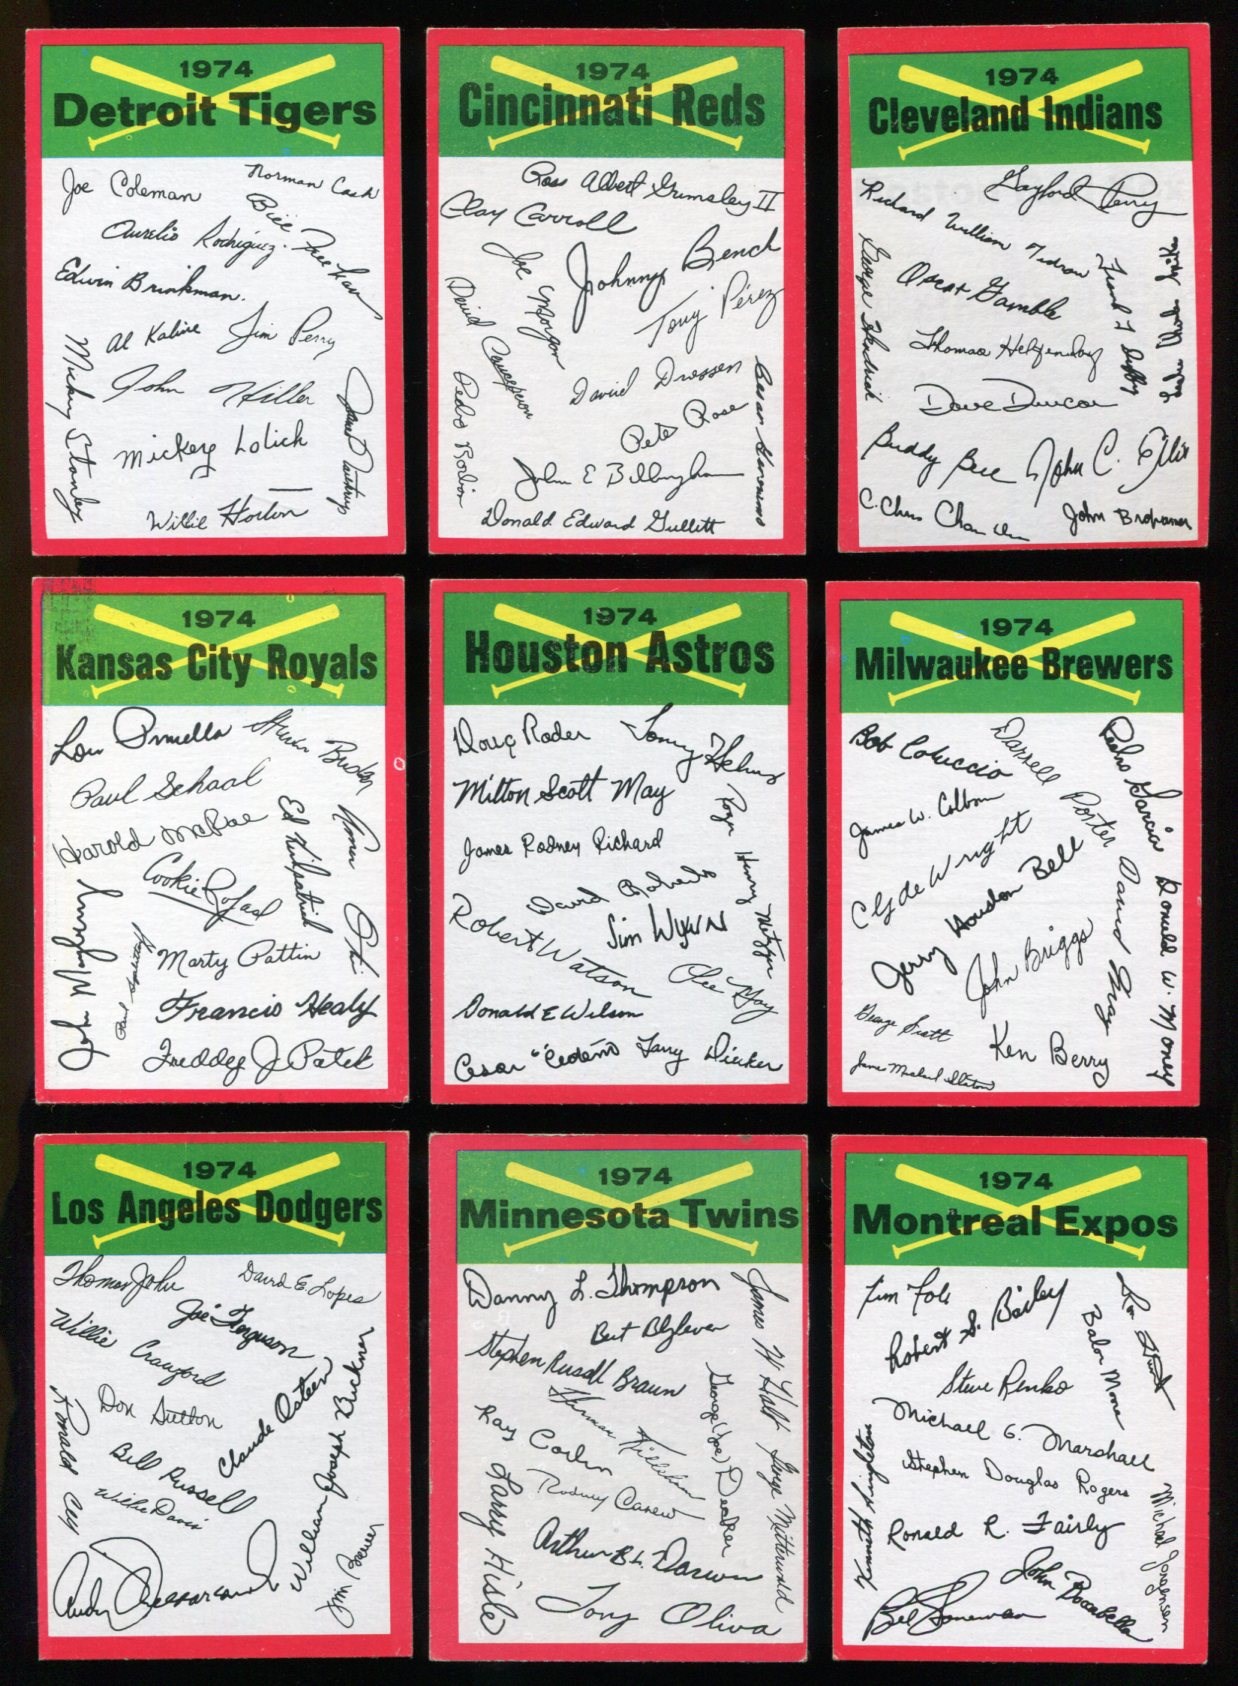 1974
Detroit Tigers
Joe Coleman
Norman Cash
Aurelio Rodriguez.
Bill Freehan
Edwin Brinkman.
Al Kaline
Jim Perry
John Hiller
Mickey Stanley
Mickey Lolich
Willie Horton
1974
Cincinnati Reds
Ross Albert Grimsley II
Clay Carroll
Johnny Bench
Joe Morgan
Tony Pérez
David Concepcion
Daniel Driessen
Pete Rose
Pedro Borbon
John E Billingham
Cesar Geronimo
Donald Edward Gullett
1974
Cleveland Indians
Gaylord Perry
Richard William Tidrow
Oscar Gamble
Frank T Duffy
George Hendrick
Thomas Hilgendorf
Dave Duncan
Buddy Bell
John C. Ellis
C. Chris Chambliss
John Brohamer
1974
Kansas City Royals
Lou Piniella
Steven Busby
Paul Schaal
Harold McRae
Ed Kirkpatrick
Amos Otis
Cookie Rojas
John Mayberry
Marty Pattin
Francis Healy
Freddy J Patek
1974
Houston Astros
Doug Rader
Tommy Helms
Milton Scott May
Roger Henry Metzger
James Rodney Richard
David Roberts
Robert Watson
Jim Wynn
Lee May
Donald E Wilson
Cesar Cedeño
Larry Dierker
1974
Milwaukee Brewers
Bob Coluccio
Darrell Porter
Pedro Garcia
James W. Colborn
Clyde Wright
Jerry Houston Bell
John Briggs
Donald W. Money
George Scott
Ken Berry
1974
Los Angeles Dodgers
Thomas John
David E. Lopes
Joe Ferguson
Willie Crawford
Don Sutton
Claude Osteen
William Joseph Buckner
Ronald Cey
Bill Russell
Willie Davis
Andy Messersmith
Jim Brewer
1974
Minnesota Twins
Danny L. Thompson
Bert Blyleven
James H Holt
Stephen Russell Braun
Herman Killebrew
George (Joe) Decker
Ray Corbin
Rodney Carew
George Mitterwald
Larry Hisle
Arthur B L. Darwin
Tony Oliva
1974
Montreal Expos
Tim Foli
Robert S. Bailey
Ron Hunt
Balor Moore
Steve Renko
Michael G. Marshall
Stephen Douglas Rogers
Kenneth Singleton
Ronald R. Fairly
Michael Jorgensen
John Boccabella
Bill Stoneman